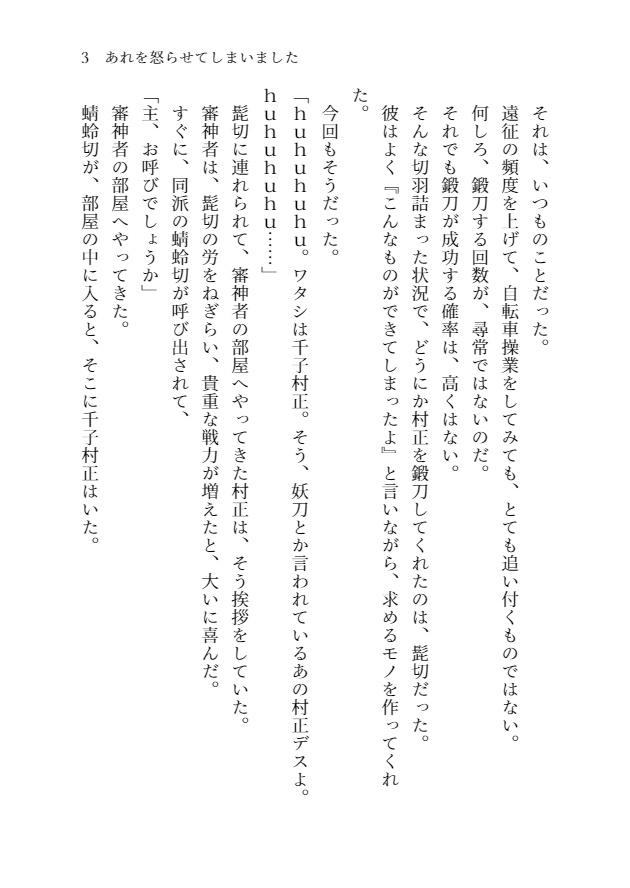 3　あれを怒らせてしまいました
それは、いつものことだった。
遠征の頻度を上げて、自転車操業をしてみても、とても追い付くものではない。
何しろ、鍛刀する回数が、尋常ではないのだ。
それでも鍛刀が成功する確率は、高くはない。
そんな切羽詰まった状況で、どうにか村正を鍛刀してくれたのは、髭切だった。
彼はよく『こんなものができてしまったよ』と言いながら、求めるモノを作ってくれ
た。
今回もそうだった。
「ｈｕｈｕｈｕｈｕ。ワタシは千子村正。そう、妖刀とか言われているあの村正デスよ。
ｈｕｈｕｈｕｈｕ……」
髭切に連れられて、審神者の部屋へやってきた村正は、そう挨拶をしていた。
審神者は、髭切の労をねぎらい、貴重な戦力が増えたと、大いに喜んだ。
すぐに、同派の蜻蛉切が呼び出されて、
「主、お呼びでしょうか」
審神者の部屋へやってきた。
蜻蛉切が、部屋の中に入ると、そこに千子村正はいた。